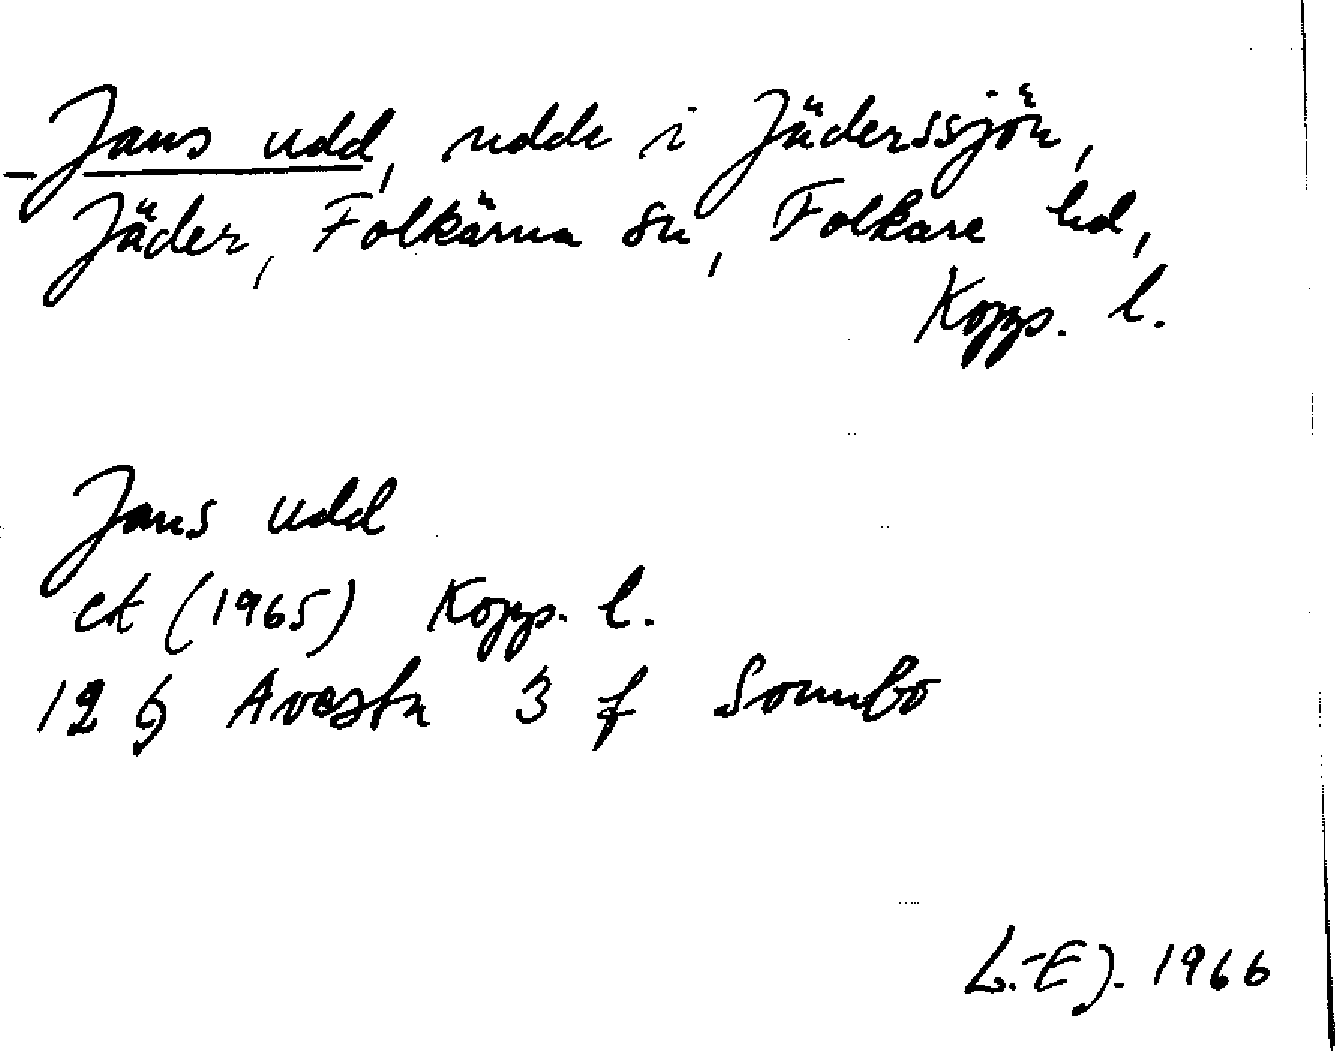 Jans udd, udde i Jäderssjön,
Jäder, Folkärna sn, Folkare hd,
Kopp. l.
Jans udd
ek (1965) Kopp. l.
12 G Avesta 3 f Sonnbo
L.-E J. 1966